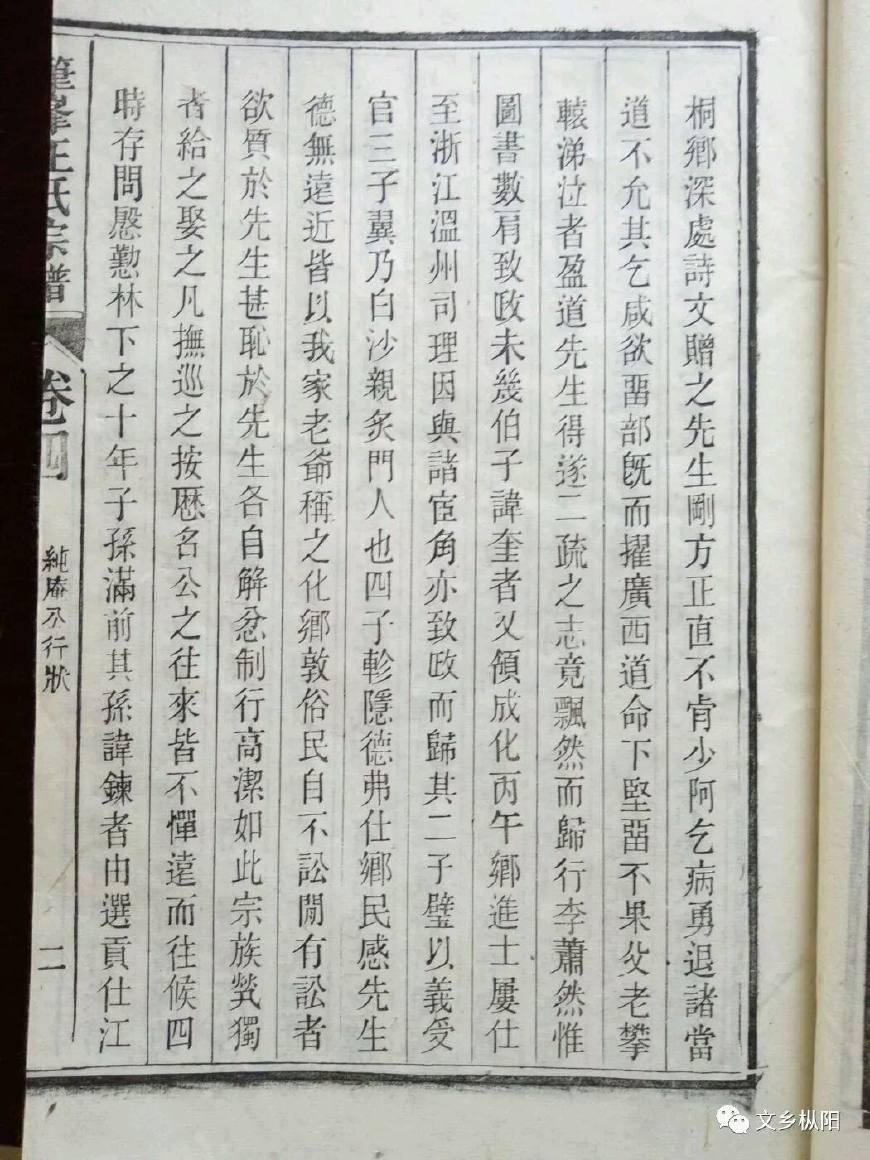 桐鄉深處詩文贈之先生剛方正直不肯少阿乞病勇退諸當
道不允其乞咸欲畱部旣而擢廣西道命下堅畱不果父老攀
轅涕泣者盈道先生得遂二疏之志竟飄然而歸行李蕭然惟
圖書數肩致政未幾伯子諱奎者又領成化丙午鄉進士屢仕
至浙江溫州司理因與諸宦角亦致政而歸其二子璧以義受
官三子翼乃白沙親炙門人也四子軫隱德弗仕鄉民感先生
德無遠近皆以我家老爺稱之化鄉敦俗民自不訟閒有訟者
欲質於先生甚恥於先生各自解忿制行高潔如此宗族煢獨
者給之娶之凡撫巡之按歷名公之往來皆不憚遠而往候四
時存問慇懃林下之十年子孫滿前其孫諱鍊者由選貢仕江
王氏宗譜
卷四
純庵公行狀
二
文乡枞阳